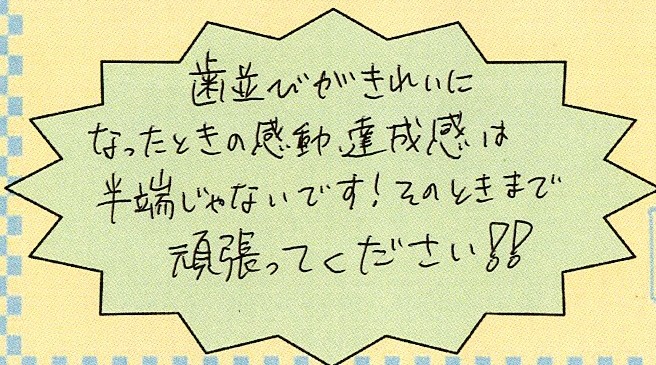 歯並びがきれいに
なったときの感動、達成感は
半端じゃないです!そのときまで
頑張ってください!!